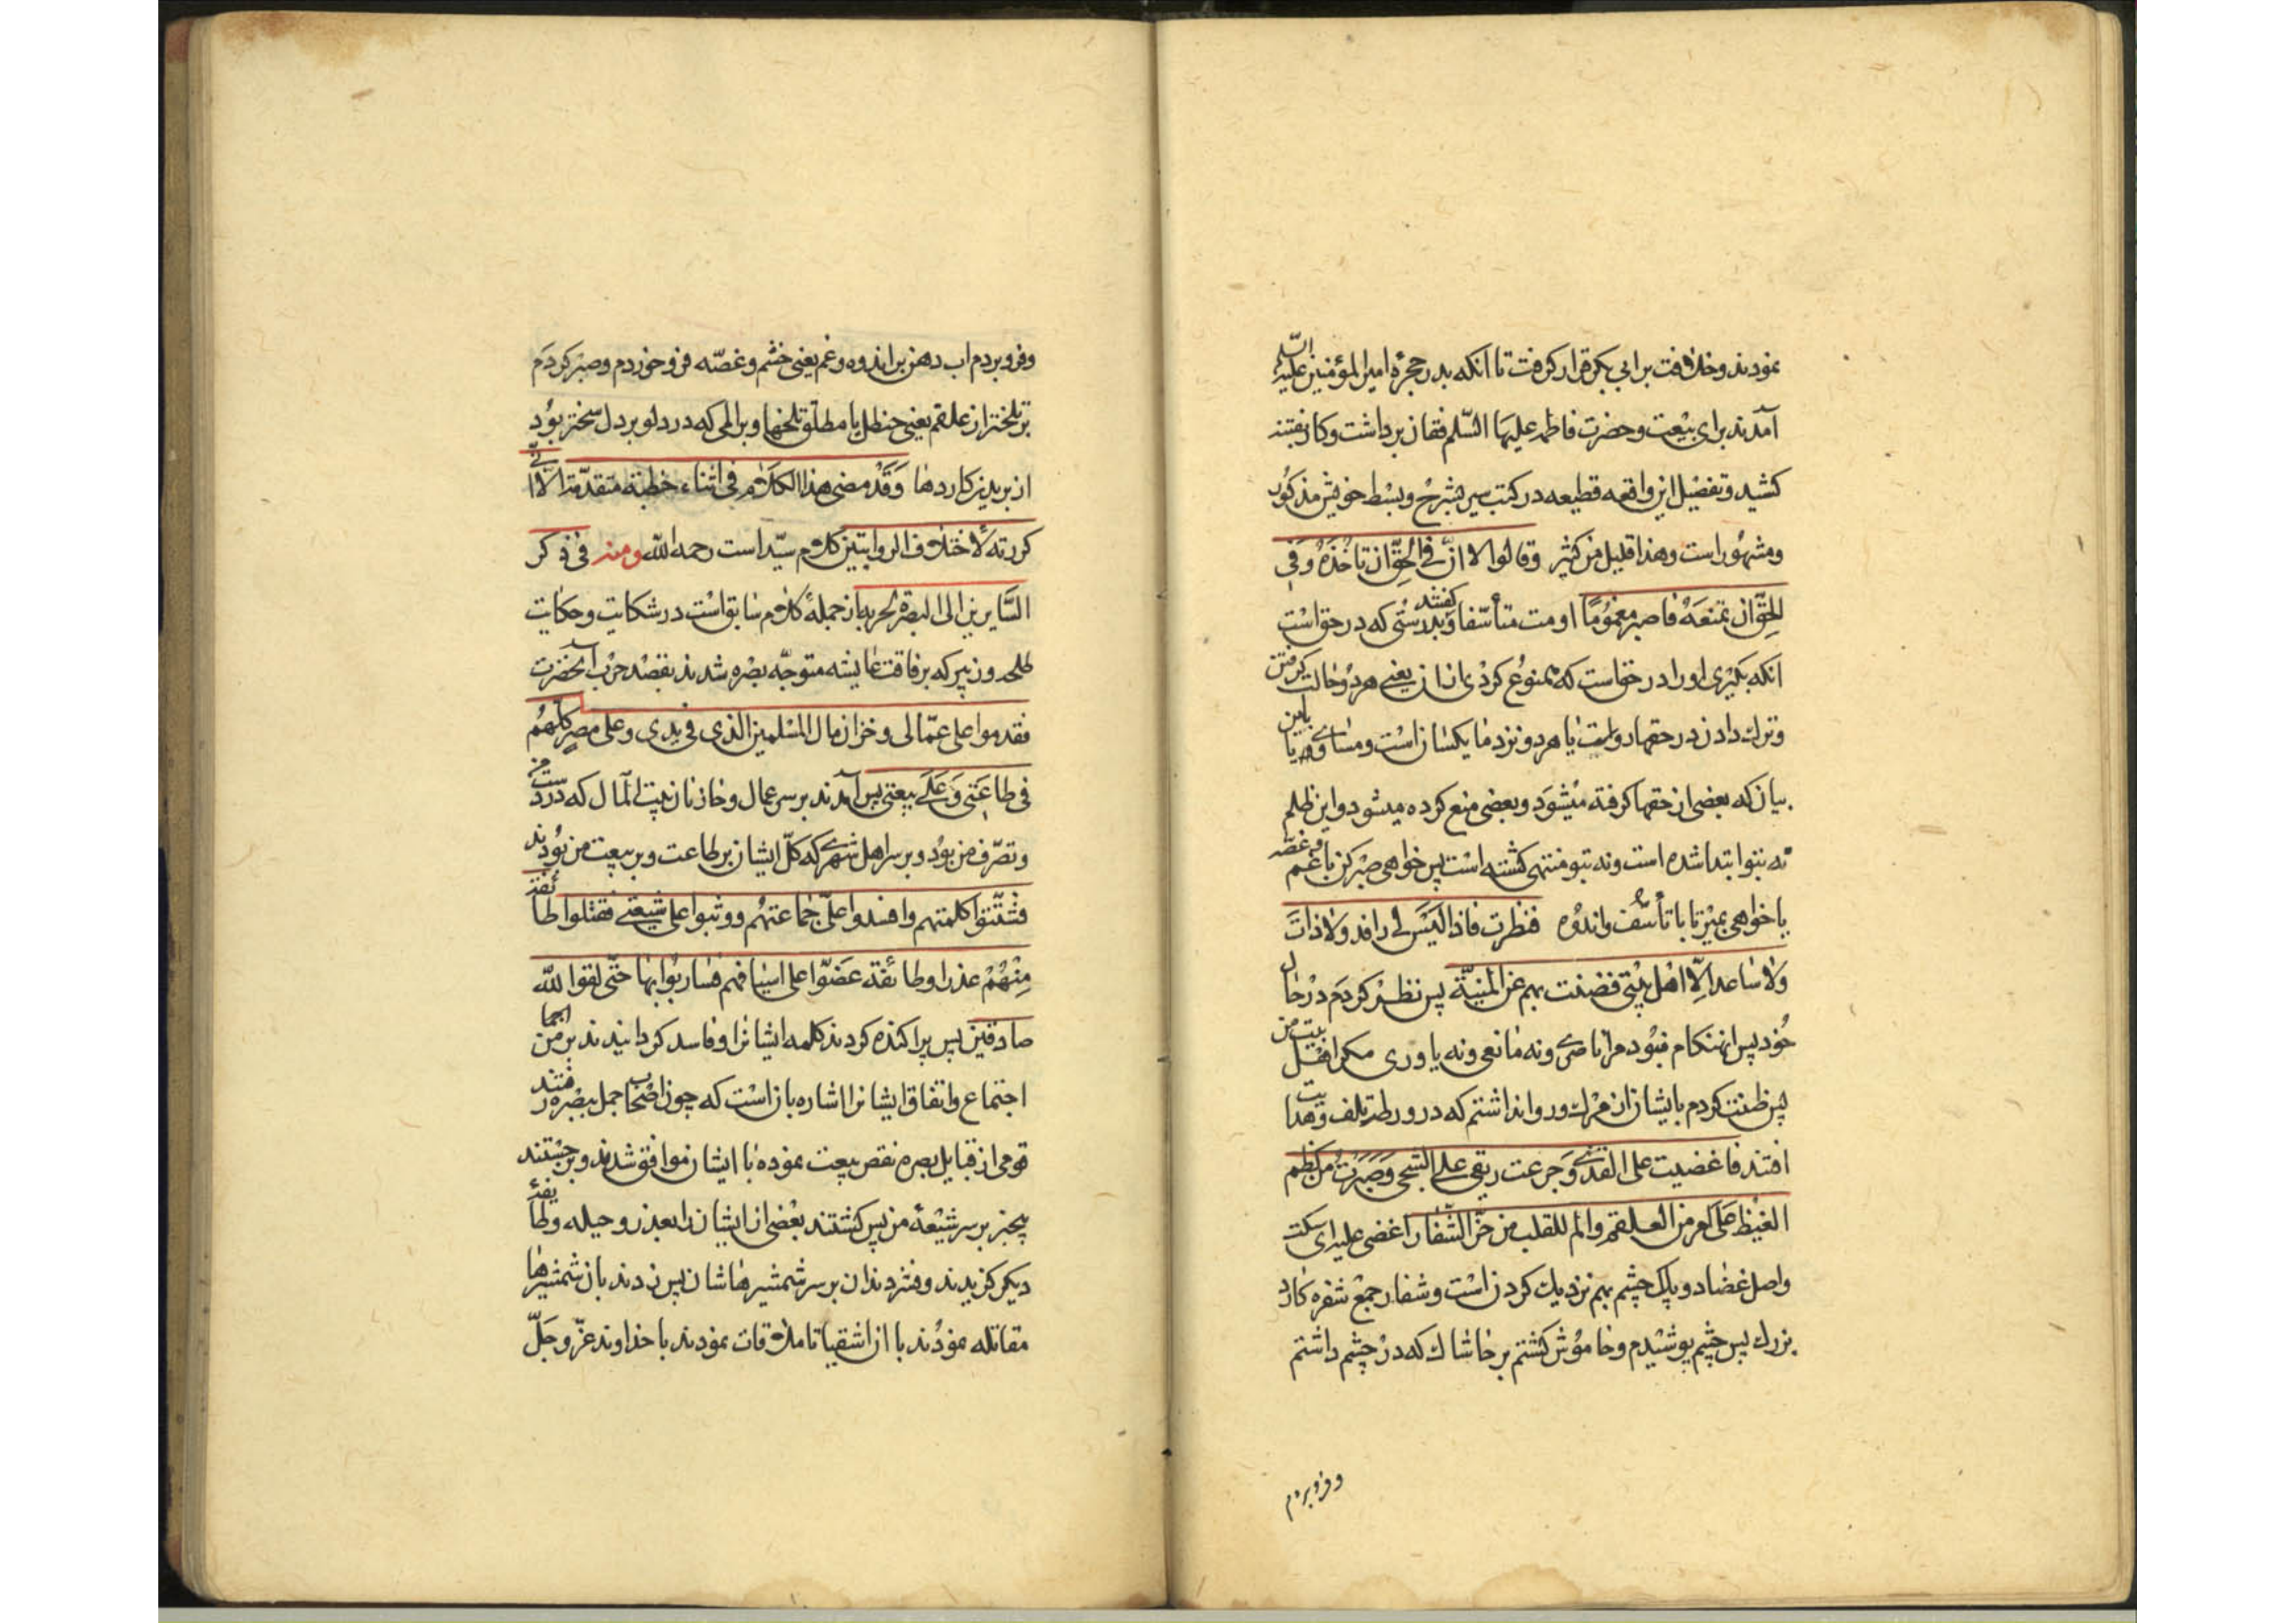 نمودند و خلافت بر ابی بکر قرار گرفت تا آنکه بدر حجرهٔ امیرالمؤمنین علیه السّلم
آمدند برای بیعت و حضرت فاطمه علیها السّلم فغان برداشت و کار بفتنه
کشید و تفصیل این واقعه فظیعه در کتب سیر بشرح و بسط خویش مذکور
و مشهور است و هذا قلیل من کثیر وقالوا الا انّ فی الحقّ ان تأخذه وفی
الحقّ ان تمنعه فاصبر مغموما او مت متأسّفا و گفتند بدرستی که در حق است
آنکه بگیری او را و در حق است که ممنوع گردی از ان یعنی هر دو حالت گرفتن
و ترک دادن در حقها رواست یا هر دو نزد ما یکسان است و مساوی و یا باین
بیان که بعضی از حقها گرفته میشود و بعضی منع کرده میشود و این ظلم
نه بتو ابتدا شده است و نه بتو منتهی گشته است پس خواهی صبر کن با غم و غصّه
یا خواهی بمیر تا با تأسّف و اندوه فنظرت فاذا لیس لی رافد ولا ذابّ
ولا ساعد الّا اهل بیتی فضننت بهم عن المنیّة پس نظر کردم در حال
خود پس انهنگام نبود مرا ناصری و نه مانعی و نه یاوری مگر اهل بیت من
پس ظنت کردم بایشان از مرگ و روا نداشتم که در ورطهٔ تلف و هدایت
افتند فاغضیت علی القذی وجرعت ریقی علی الشجی وصبرت من کظم
الغیظ علی امر من العلقم والم للقلب من حزّ الشّفار اغضی علیه ای سکت
و اصل غضاء دو پلک چشم بهم نزدیک کردن است و شفار جمع شفره کارد
بزرک پس چشم پوشیدم و خاموش گشتم بر خاشاک که در چشم داشتم
و فرو بردم
و فرو بردم اب دهن بر اندوه و غم یعنی خشم و غصّه فرو خوردم و صبر کردم
بر تلختر از علقم یعنی حنظل یا مطلق تلخها و بر المی که در دلو بر دل سختر بود
از بریدن کاردها وقد مضی هذا الکلام فی اثناء خطبة متقدّمة الّا انّی
کررته لاختلاف الروایتین کلام سیّد است رحمه اللّه ومنه فی ذکر
السّایرین الی البصرة لحربه از جملهٔ کلام سابق است در شکایت و حکایت
طلحه و زبیر که برفاقت عایشه متوجّه بصره شدند بقصد حرب آنحضرت
فقدموا علی عمّالی وخزان مال المسلمین الذی فی یدی وعلی مصر کلّهم
فی طاعتی وعلی بیعتی پس آمدند بر سر عمال و خازنان بیت المال که در دست من
و تصرّف من بود و بر سر اهل شهری که کلّ ایشان بر طاعت و بر بیعت من بودند
فشتّتوا کلمتهم وافسدوا علیّ جماعتهم ووثبوا علی شیعتی فقتلوا طائفة
منهم غدرا وطائفة عضّوا علی اسیافهم فضاربوا بها حتّی لقوا اللّه
صادقین پس پراکنده کردند کلمه ایشانرا و فاسد گردانیدند بر من اجماع
اجتماع و اتفاق ایشانرا اشاره بان است که چون اصحاب جمل ببصره رفتند
قومی از قبایل بصره نقض بیعت نموده با ایشان موافق شدند و برجستند
بیخبر بر سر شیعهٔ من پس کشتند بعضی از ایشان را بعذر و حیله و طایفهٔ
دیگر گزیدند و فشردند دندان بر سر شمشیرهاشان پس زدند بان شمشیرها
مقاتله نمودند با ان اشقیا تا ملاقات نمودند با خداوند عزّ و جلّ